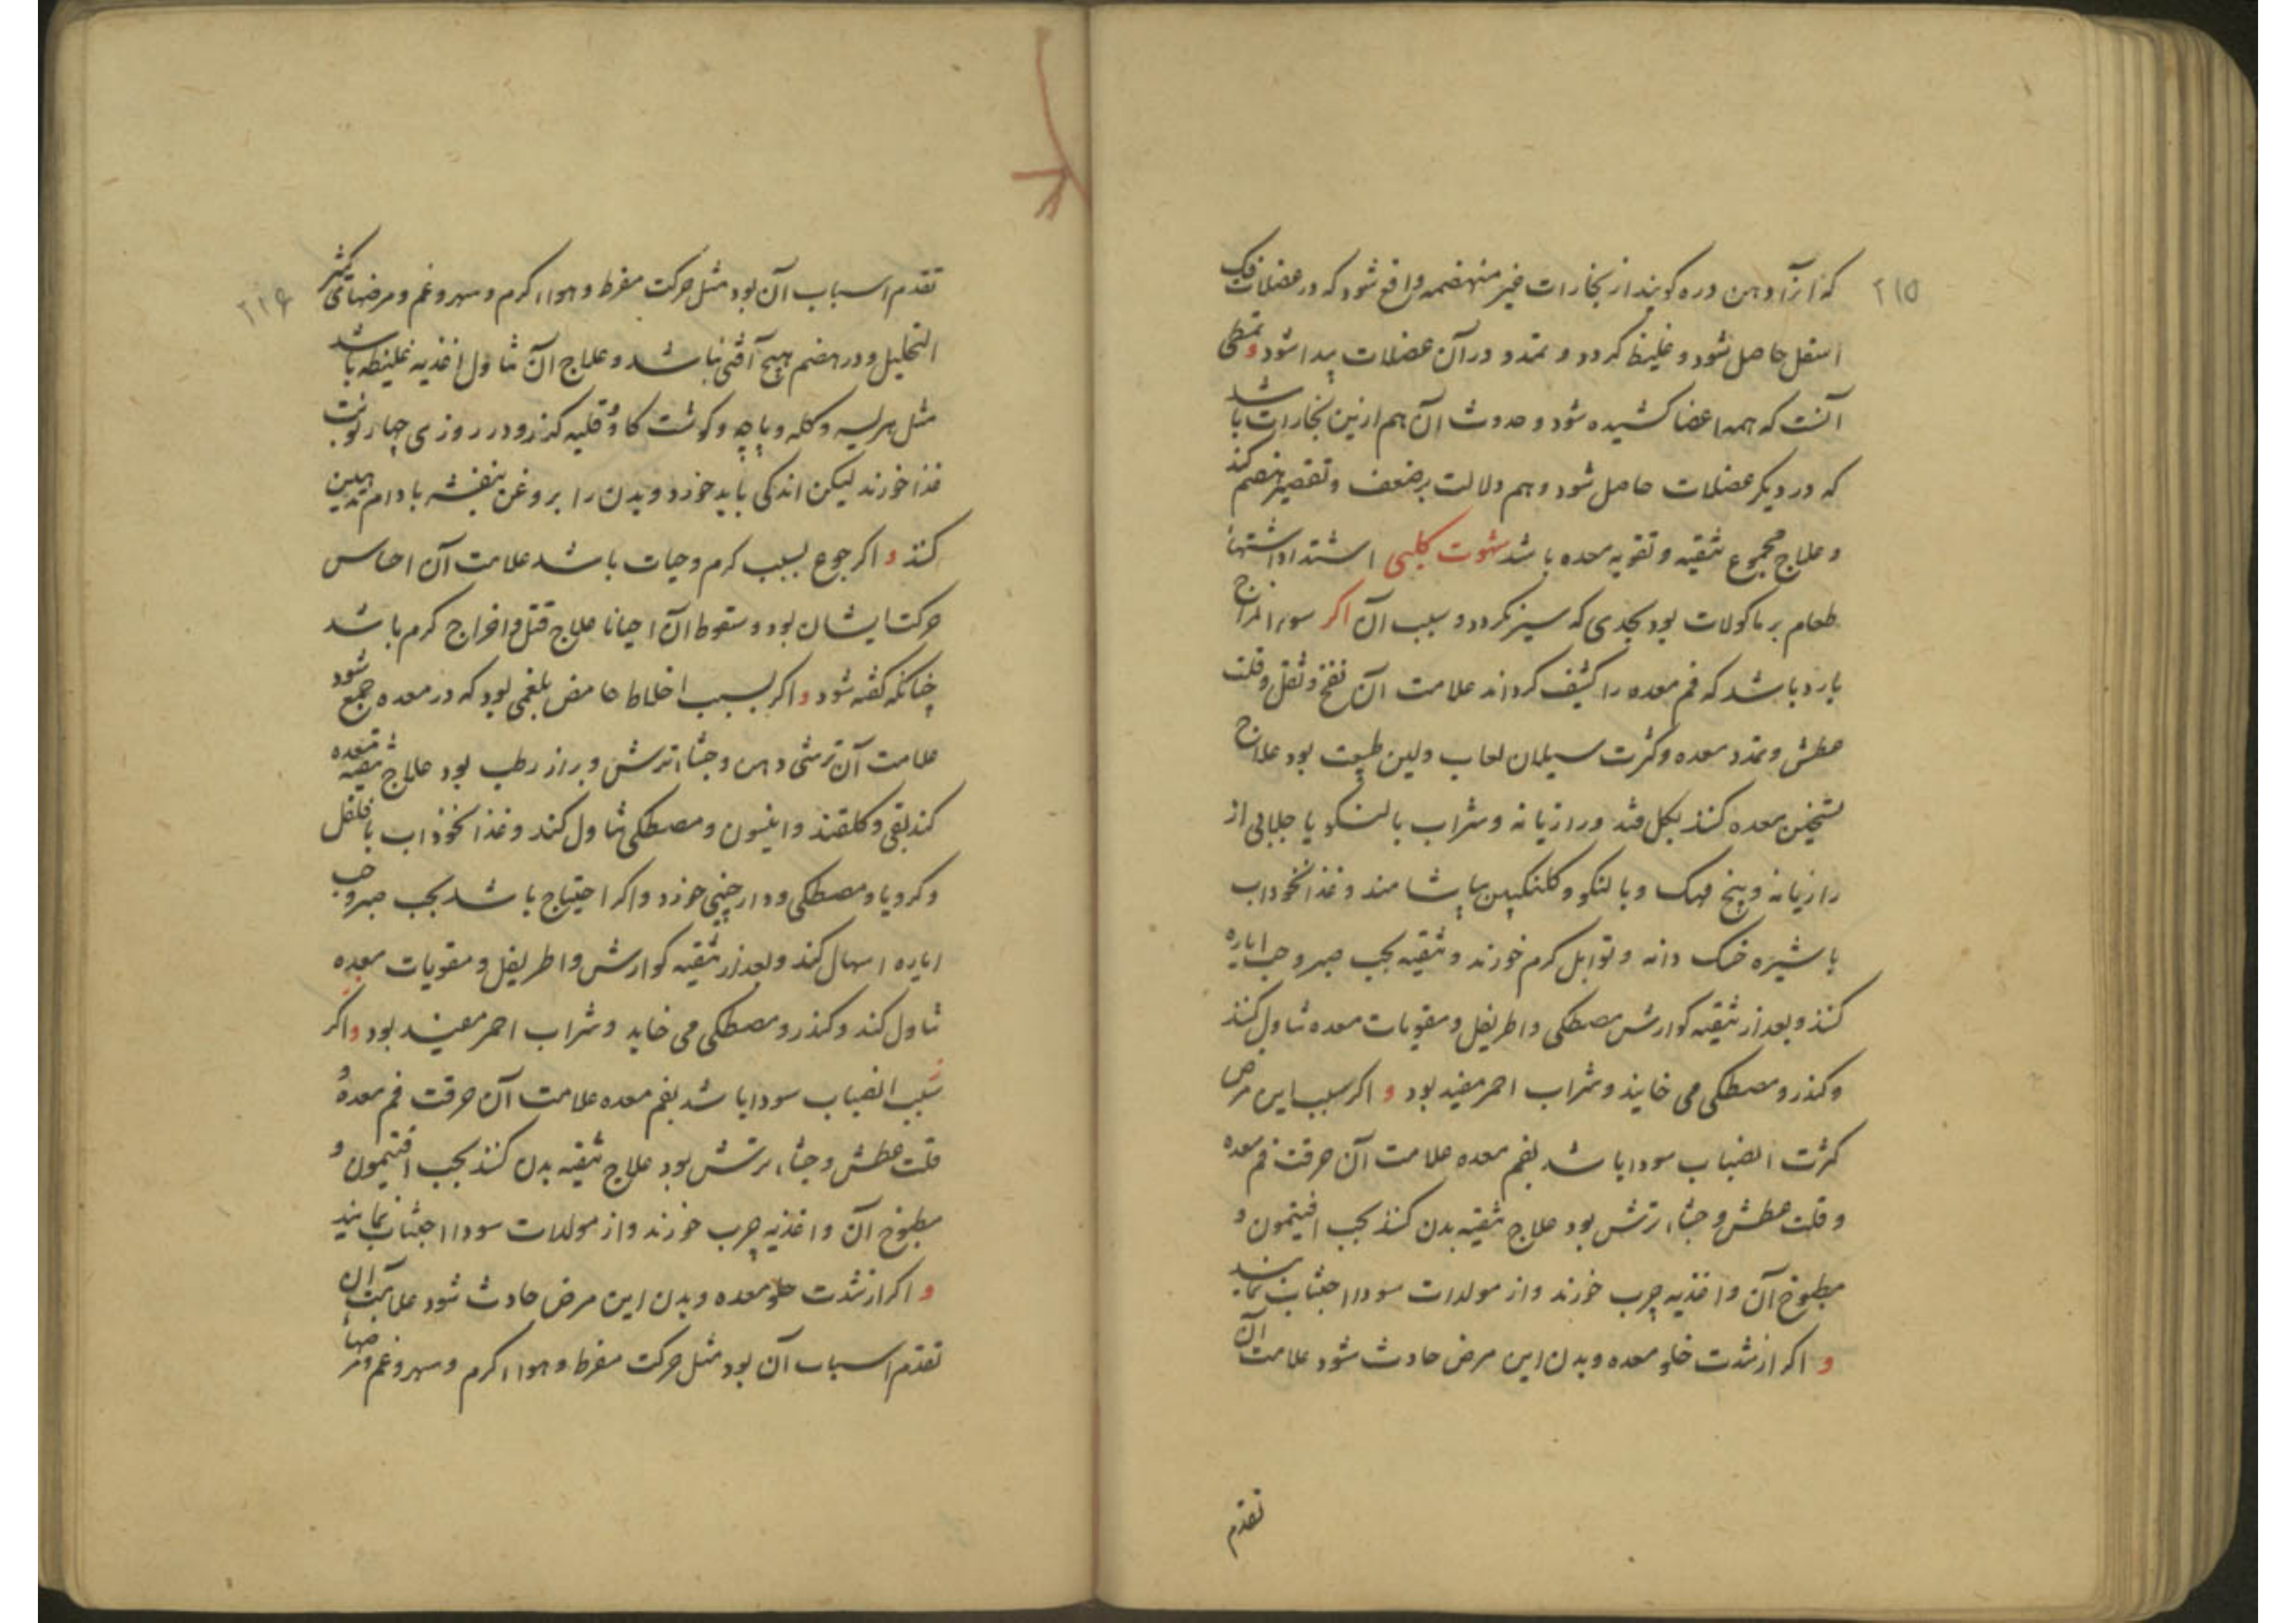 ۲۱۵
که انرا دهن دره کویند از بخارات غیر منهضمه واقع شود که در عضلات فک
اسفل حاصل شود و غلیظ کردد و تمدد در آن عضلات پیدا شود و تمطی
آنست که همه اعضا کشیده شود و حدوث آن هم ازین بخارات باشد
که در دیکر عضلات حاصل شود و هم دلالت بر ضعف و تقصیر هضم کند
و علاج مجموع تنقیه و تقویه معده باشد شهوت کلبی اشتداد اشتهاء
طعام بر ماکولات بود بحدی که سیر نکردد و سبب آن اکر سوء المزاج
بارد باشد که فم معده را کثیف کرداند علامت آن نفخ و ثقل و قلت
عطش و تمدد معده و کثرت سیلان لعاب و لین طبیعت بود علاج
تسخین معده کنند بکل قند و رازیانه و شراب بالنکو یا جلابی از
رازیانه و بیخ مهک و بالنکو و کلنکبین بیاشامند و غذا نخوداب
با شیره خسک دانه و توابل کرم خورند و تنقیه بحب صبر و حب ایاره
کنند و بعد از تنقیه کوارش مصطکی و اطریفل و مقویات معده تناول کنند
و کندر و مصطکی می خایند و شراب احمر مفید بود و اکر سبب این مرض
کثرت انصباب سودا باشد بفم معده علامت آن حرقت فم معده
و قلت عطش و جشاء ترش بود علاج تنقیه بدن کنند بحب افتیمون و
مطبوخ آن و اغذیه چرب خورند و از مولدات سودا اجتناب نمایند
و اکر از شدت خلو معده و بدن این مرض حادث شود علامت آن
تقدم
۲۱۶
تقدم اسباب آن بود مثل حرکت مفرط و هواء کرم و سهر و غم و مرضهای کثیر
التحلیل و در هضم هیچ آفتی نباشد و علاج آن تناول اغذیه غلیظه باشد
مثل هریسه و کله و پاچه و کوشت کاو و قلیه کزر و در روزی چهار نوبت
غذا خورند لیکن اندکی باید خورد و بدن را بروغن بنفشه بادام تدهین
کنند و اکر جوع بسبب کرم و حیات باشد علامت آن احساس
حرکت ایشان بود و سقوط آن احیانا علاج قتل و اخراج کرم باشد
چنانکه کفته شود و اکر بسبب اخلاط حامض بلغمی بود که در معده جمع شود
علامت آن ترشی دهن و جشاء ترش و براز رطب بود علاج تنقیه معده
کند بقی و کلقند و انیسون و مصطکی تناول کند و غذا نخوداب با فلفل
و کرویا و مصطکی و دارچینی خورد و اکر احتیاج باشد بحب صبر و حب
ایاره اسهال کند و بعد از تنقیه کوارش و اطریفل و مقویات معده
تناول کند و کندر و مصطکی می خاید و شراب احمر مفید بود و اکر
سبب انصباب سودا باشد بفم معده علامت آن حرقت فم معده و
قلت عطش و جشاء ترش بود علاج تنقیه بدن کنند بحب افتیمون و
مطبوخ آن و اغذیه چرب خورند و از مولدات سودا اجتناب نمایند
و اکر از شدت خلو معده و بدن این مرض حادث شود علامت آن
تقدم اسباب آن بود مثل حرکت مفرط و هواء کرم و سهر و غم و مرضهاء